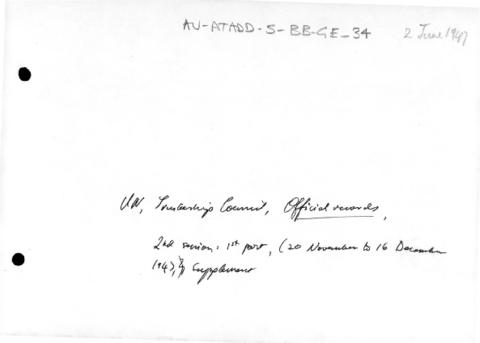 AU-ATADD-S-BB-GE-34 2 June 1947
UN, Trusteeship Council, Official records,
2nd session: 1st part, (20 November to 16 December
1947), Supplement